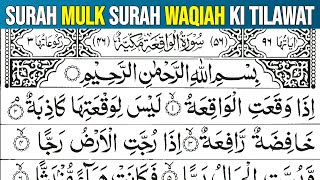 SURAH MULK SURAH WAQIAH KI TILAWAT
اٰيَاتُهَا ٩٦ (٥٦) سُوْرَةُ الْوَاقِعَةِ مَكِّيَّةٌ (٤٦) رُكُوْعَاتُهَا ٣
بِسْمِ اللّٰهِ الرَّحْمٰنِ الرَّحِيْمِ
اِذَا وَقَعَتِ الْوَاقِعَةُ ۙ﴿١﴾ لَيْسَ لِوَقْعَتِهَا كَاذِبَةٌ ۘ﴿٢﴾
خَافِضَةٌ رَّافِعَةٌ ۙ﴿٣﴾ اِذَا رُجَّتِ الْاَرْضُ رَجًّا ۙ﴿٤﴾
فَكَانَتْ هَبَآءً مُّنْۢبَثًّا